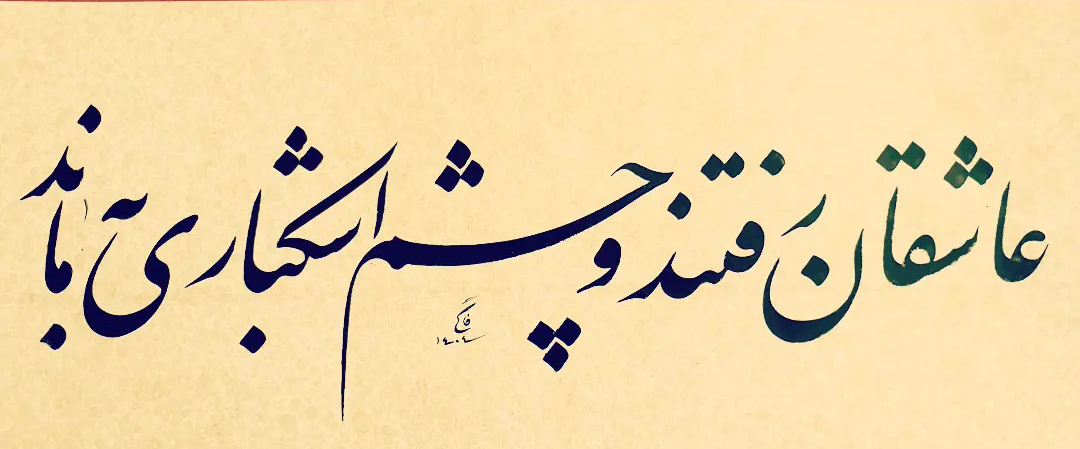 عاشقان رفتند و چشم اشکباری بماند
۱۴۰۴